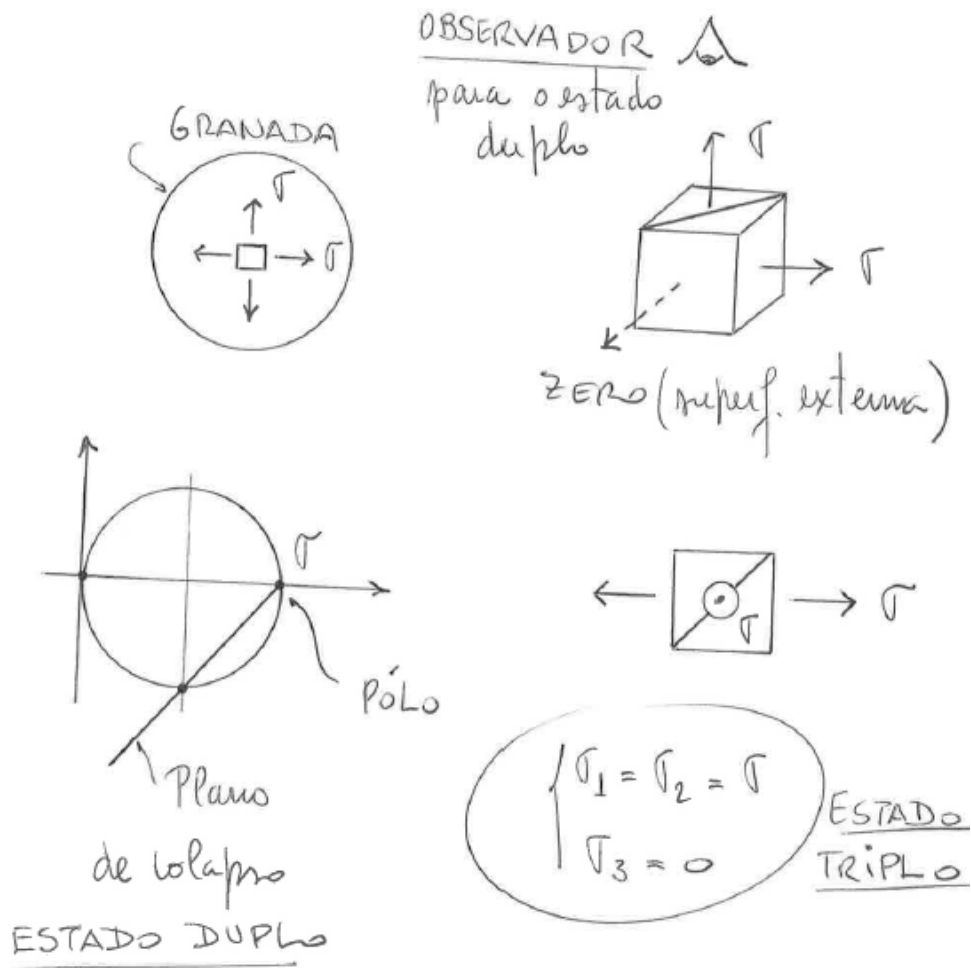 OBSERVADOR
para o estado
duplo
GRANADA
σ
σ
σ
σ
ZERO (superf. externa)
σ
PÓLO
Plano
de colapso
ESTADO DUPLO
σ
σ
σ1 = σ2 = σ
σ3 = 0
ESTADO
TRIPLO